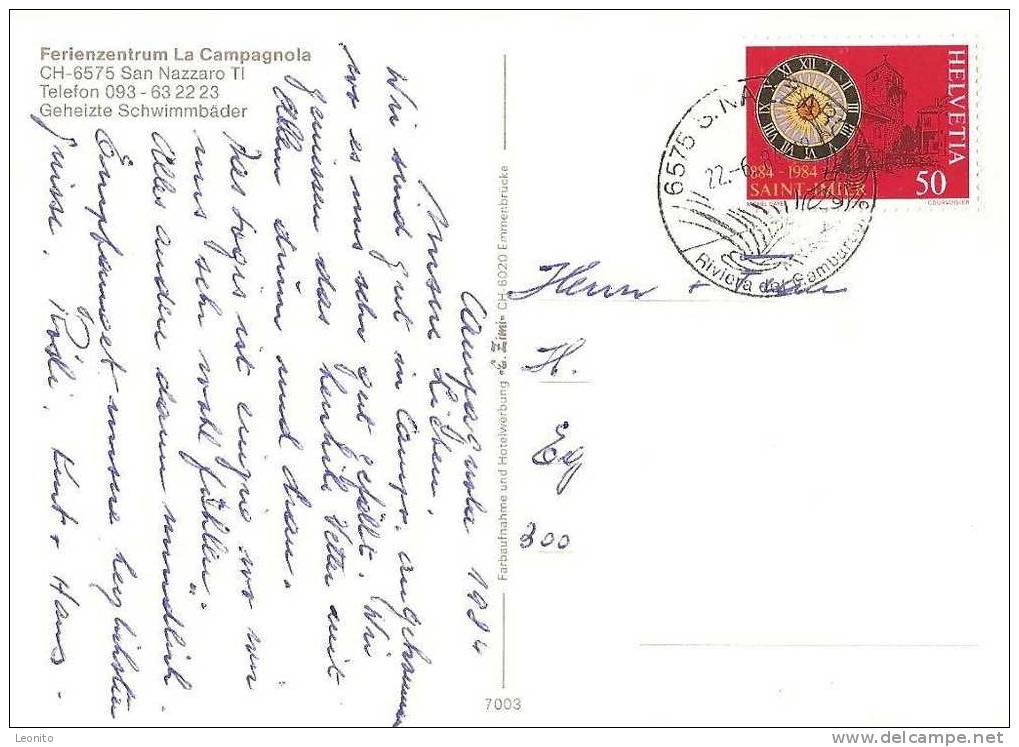 Ferienzentrum La Campagnola
CH-6575 San Nazzaro TI
Telefon 093 - 63 22 23
Geheizte Schwimmbäder
Campagnola 1984
Unsere Lieben,
Wir sind gut in Camp. angekommen
wo es uns sehr gut gefällt. Wir
geniessen das herrliche Wetter mit
allem drum und dran.
Das Logis ist einzig wo wir
uns sehr wohl fühlen.
Alles andere dann mündlich.
Empfanget unsere herzlichsten
Grüsse. Rösli. Kurt + Hans.
Farbaufnahme und Hotelwerbung E. Zimi CH-6020 Emmenbrücke
7003
HELVETIA
884 - 1984
SAINT-IMIER
50
COURVOISIER
6575 S. NA
22.-6.
Riviera del Gambarogno
Herrn + Frau
H.
Eg
300
Leonito
www.delcampe.net